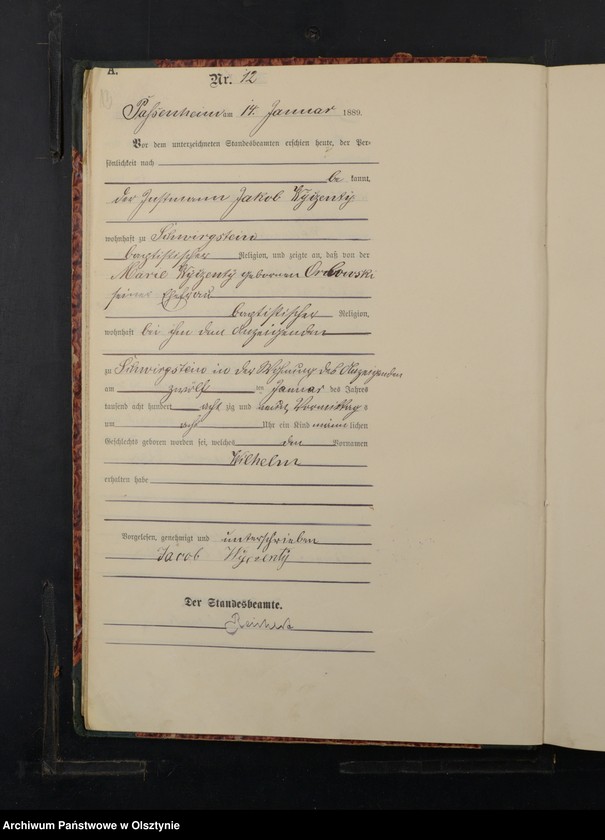 A.
Nr. 12
Passenheim am 14. Januar 1889.
Vor dem unterzeichneten Standesbeamten erschien heute, der Per-
sönlichkeit nach
be kannt,
der Instmann Jakob Wyizenty
wohnhaft zu Schwirgstein
baptistischer Religion, und zeigte an, daß von der
Marie Wyizenty geborenen Orlowski
seiner Ehefrau
baptistischer Religion,
wohnhaft bei ihm dem Anzeigenden
zu Schwirgstein in der Wohnung des Anzeigenden
am zwölf ten Januar des Jahres
tausend acht hundert acht zig und neun, Vormittag s
um acht Uhr ein Kind männ lichen
Geschlechts geboren worden sei, welches den Vornamen
Wilhelm
erhalten habe
Vorgelesen, genehmigt und unterschrieben
Jacob
Der Standesbeamte.
Archiwum Państwowe w Olsztynie